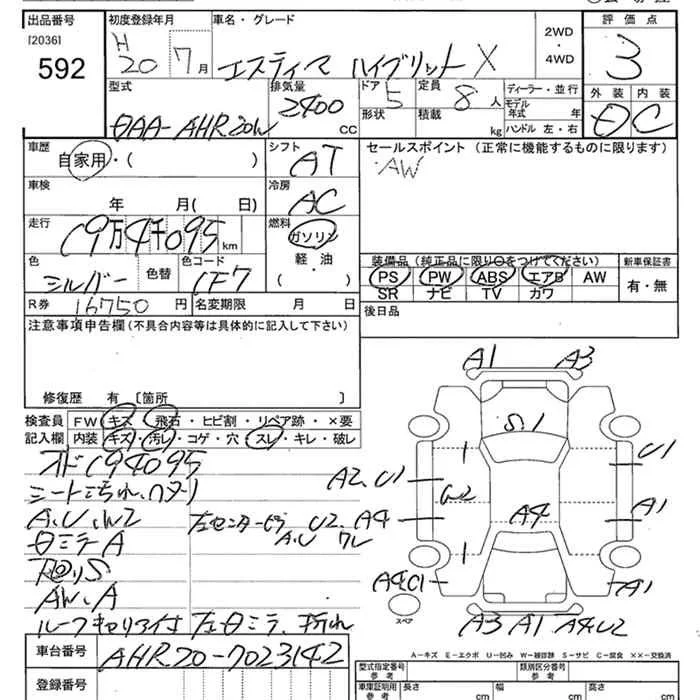 出品番号 初度登録年月 車名・グレード 評価点
[2036]
592
H20 7月 エスティマ ハイブリット X 2WD・4WD 3
型式 排気量 ドア 5 定員 8人 ディーラー・並行 外装 内装
DAA-AHR20W 2400 CC 形状 積載 kg モデル年式 年 ハンドル 左・右 D C
車歴 シフト セールスポイント (正常に機能するものに限ります)
自家用・( ) AT AW
車検 冷房
年 月( 日) AC
走行 燃料
19万4千095km ガソリン
軽・油
( )
装備品 (純正品に限り○をつけてください) 新車保証書
PS PW ABS エアB AW 有・無
SR ナビ TV カワ
色 色替 色コード
シルバー 1F7
R券 16750円 名変期限 月 日 後日品
注意事項申告欄 (不具合内容等は具体的に記入して下さい)
修復歴 有 [箇所 ]
検査員 FW キズ・飛石・ヒビ割・リペア跡・×要
記入欄 内装 キズ・汚レ・コゲ・穴・スレ・キレ・破レ
オド194095
シート汚れ、ヘタリ
A、U、W2 左センターピラ U2、A4
A、U ワレ
ドミラA
AW、A
ルーフキャリア付 左ドミラ、折れ
A1 A3
S.1
U1
A2、U1
W2
A1
A4
A4C1 A1
スペア
A3 A1 A4U2
A-キズ E-エクボ U-凹み W-補修跡 S-サビ C-腐食 XX-交換済
車台番号 AHR20-7023142
型式指定番号 参考 類別区分番号 参考
登録番号 車庫証明用 参考 長さ cm 幅 cm 高さ cm